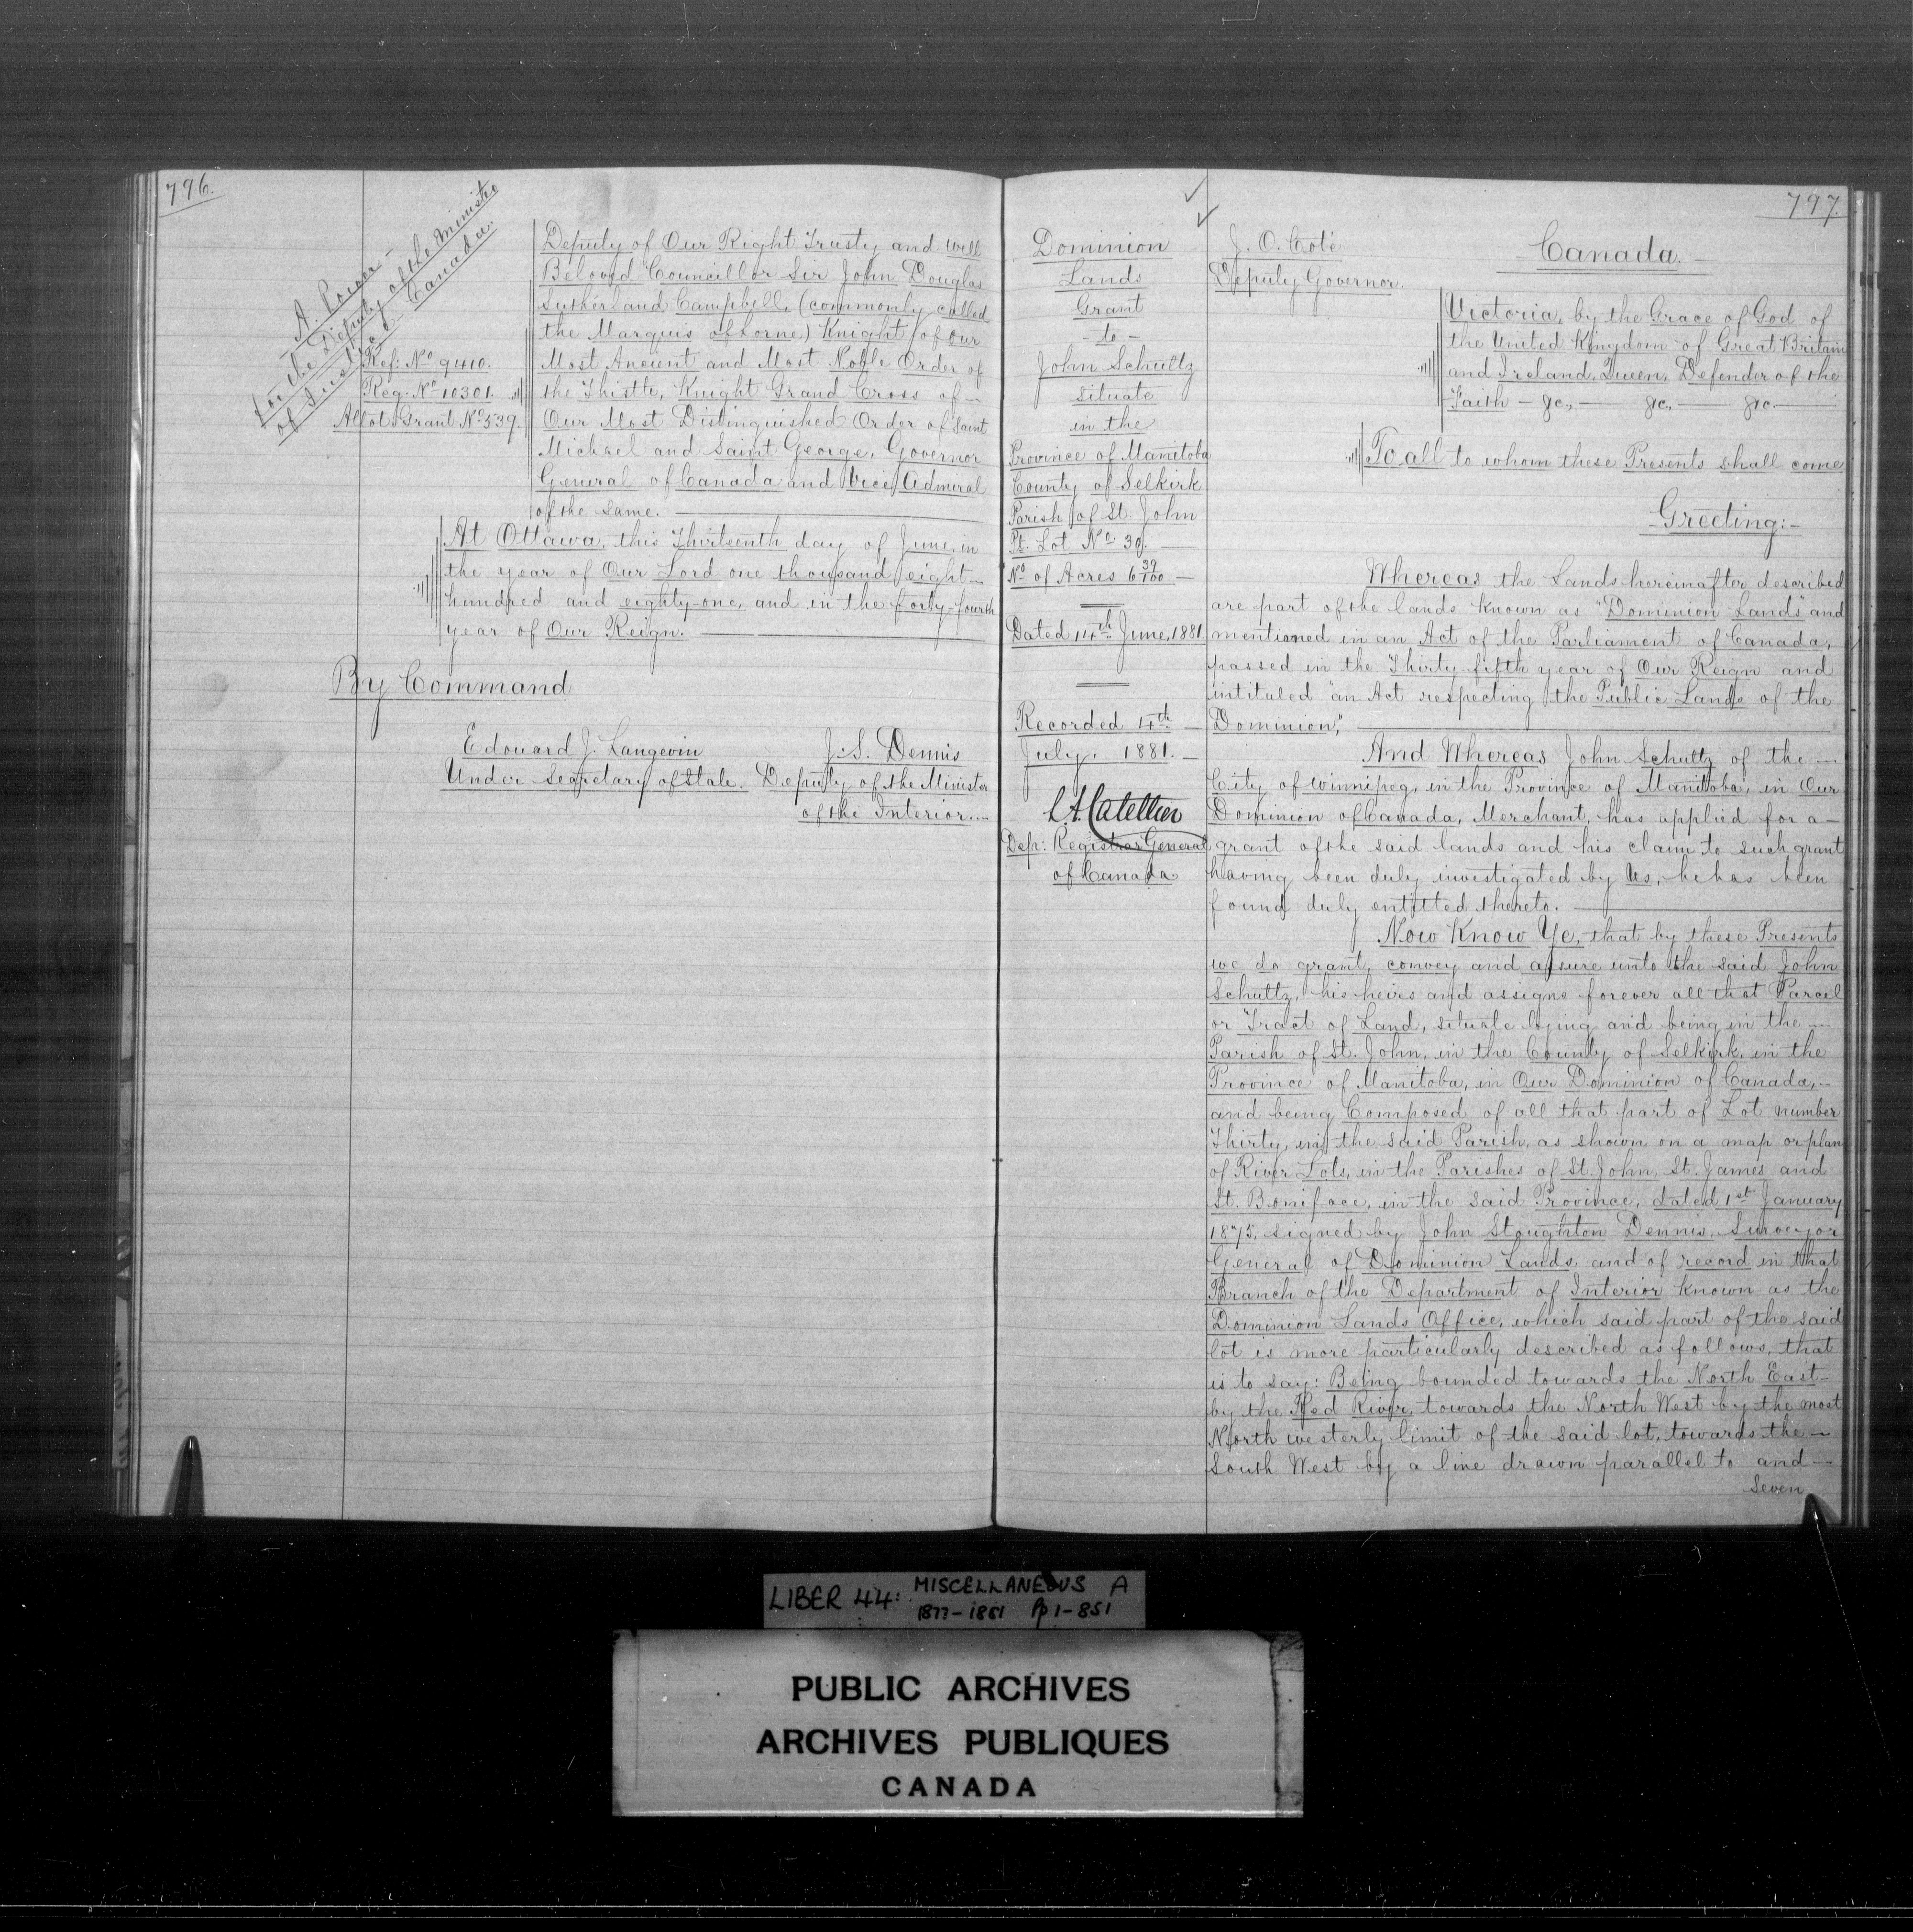 796.
A. Power
for the Deputy of the Minister
of Justice Canada.
Ref: No 9410.
Reg. No 10301.
Allot. Grant No 539.
Deputy of Our Right Trusty and Well
Beloved Councillor Sir John Douglas
Sutherland Campbell, (commonly called
the Marquis of Lorne) Knight of Our
Most Ancient and Most Noble Order of
the Thistle, Knight Grand Cross of —
Our Most Distinguished Order of Saint
Michael and Saint George, Governor
General of Canada and Vice Admiral
of the same.
At Ottawa, this Thirteenth day of June, in
the year of Our Lord one thousand eight—
hundred and eighty-one, and in the forty-fourth
year of Our Reign.
By Command
Edouard J. Langevin
Under Secretary of State.
J. S. Dennis
Deputy of the Minister
of the Interior.
797.
Dominion
Lands
Grant
- to -
John Schultz
Situate
in the
Province of Manitoba
County of Selkirk
Parish of St. John
Pt. Lot No 30.
No of Acres 6 39/100 —
Dated 14th June, 1881.
Recorded 14th —
July, 1881. —
L. A. Catellier
Dep: Registrar General
of Canada.
J. O. Coté
Deputy Governor.
- Canada. -
Victoria, by the Grace of God of
the United Kingdom of Great Britain
and Ireland, Queen, Defender of the
Faith — &c., — &c., — &c. —
To all to whom these Presents shall come
Greeting:-
Whereas the Lands hereinafter described
are part of the lands known as "Dominion Lands" and
mentioned in an Act of the Parliament of Canada,
passed in the Thirty fifth year of Our Reign and
intituled "an Act respecting the Public Lands of the
Dominion,"
And Whereas John Schultz of the —
City of Winnipeg, in the Province of Manitoba, in Our
Dominion of Canada, Merchant, has applied for a —
grant of the said lands and his claim to such grant
having been duly investigated by Us, he has been
found duly entitled thereto.
Now Know Ye, that by these Presents
we do grant, convey and assure unto the said John
Schultz, his heirs and assigns forever all that Parcel
or Tract of Land, situate lying and being in the —
Parish of St. John, in the County of Selkirk, in the
Province of Manitoba, in Our Dominion of Canada, —
and being Composed of all that part of Lot number
Thirty, in the said Parish, as shown on a map or plan
of River Lots, in the Parishes of St. John, St. James and
St. Boniface, in the said Province, dated 1st January
1875, signed by John Stoughton Dennis, Surveyor
General of Dominion Lands, and of record in that
Branch of the Department of Interior known as the
Dominion Lands Office, which said part of the said
lot is more particularly described as follows, that
is to say: Being bounded towards the North East —
by the Red River, towards the North West by the most
North westerly limit of the said lot, towards the —
South West by a line drawn parallel to and —
Seven
LIBER 44: MISCELLANEOUS A
1877-1881 Pp 1-851
PUBLIC ARCHIVES
ARCHIVES PUBLIQUES
CANADA